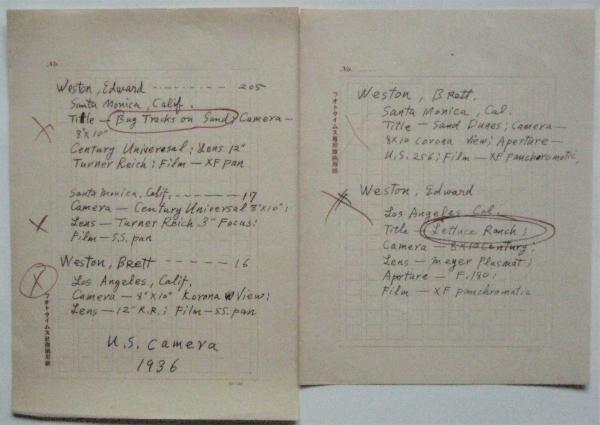 No.
Weston, Edward ---------- 205
Santa Monica, Calif.
Title — Bug Tracks on Sand; Camera —
8"x10"
Century Universal; Lens 12"
Turner Reich; Film — XF pan
Santa Monica, Calif. -------- 17
Camera — Century Universal 8"x10";
Lens — Turner Reich 3" Focus;
Film — S.S. pan
Weston, Brett ------- 16
Los Angeles, Calif.
Camera — 8"x10" Korona View;
Lens — 12" R.R.; Film — S.S. pan
U.S. Camera
1936
フオトタイムス社原稿用紙
No.
Weston, Brett.
Santa Monica, Cal.
Title — Sand Dunes; Camera —
8x10 Corona View; Aperture —
U.S. 256; Film — XF panchromatic
Weston, Edward
Los Angeles, Cal.
Title — Lettuce Ranch;
Camera — 8x10 Century;
Lens — meyer Plasmat;
Aparture — F. 180;
Film — XF panchromatic
フオトタイムス社原稿用紙